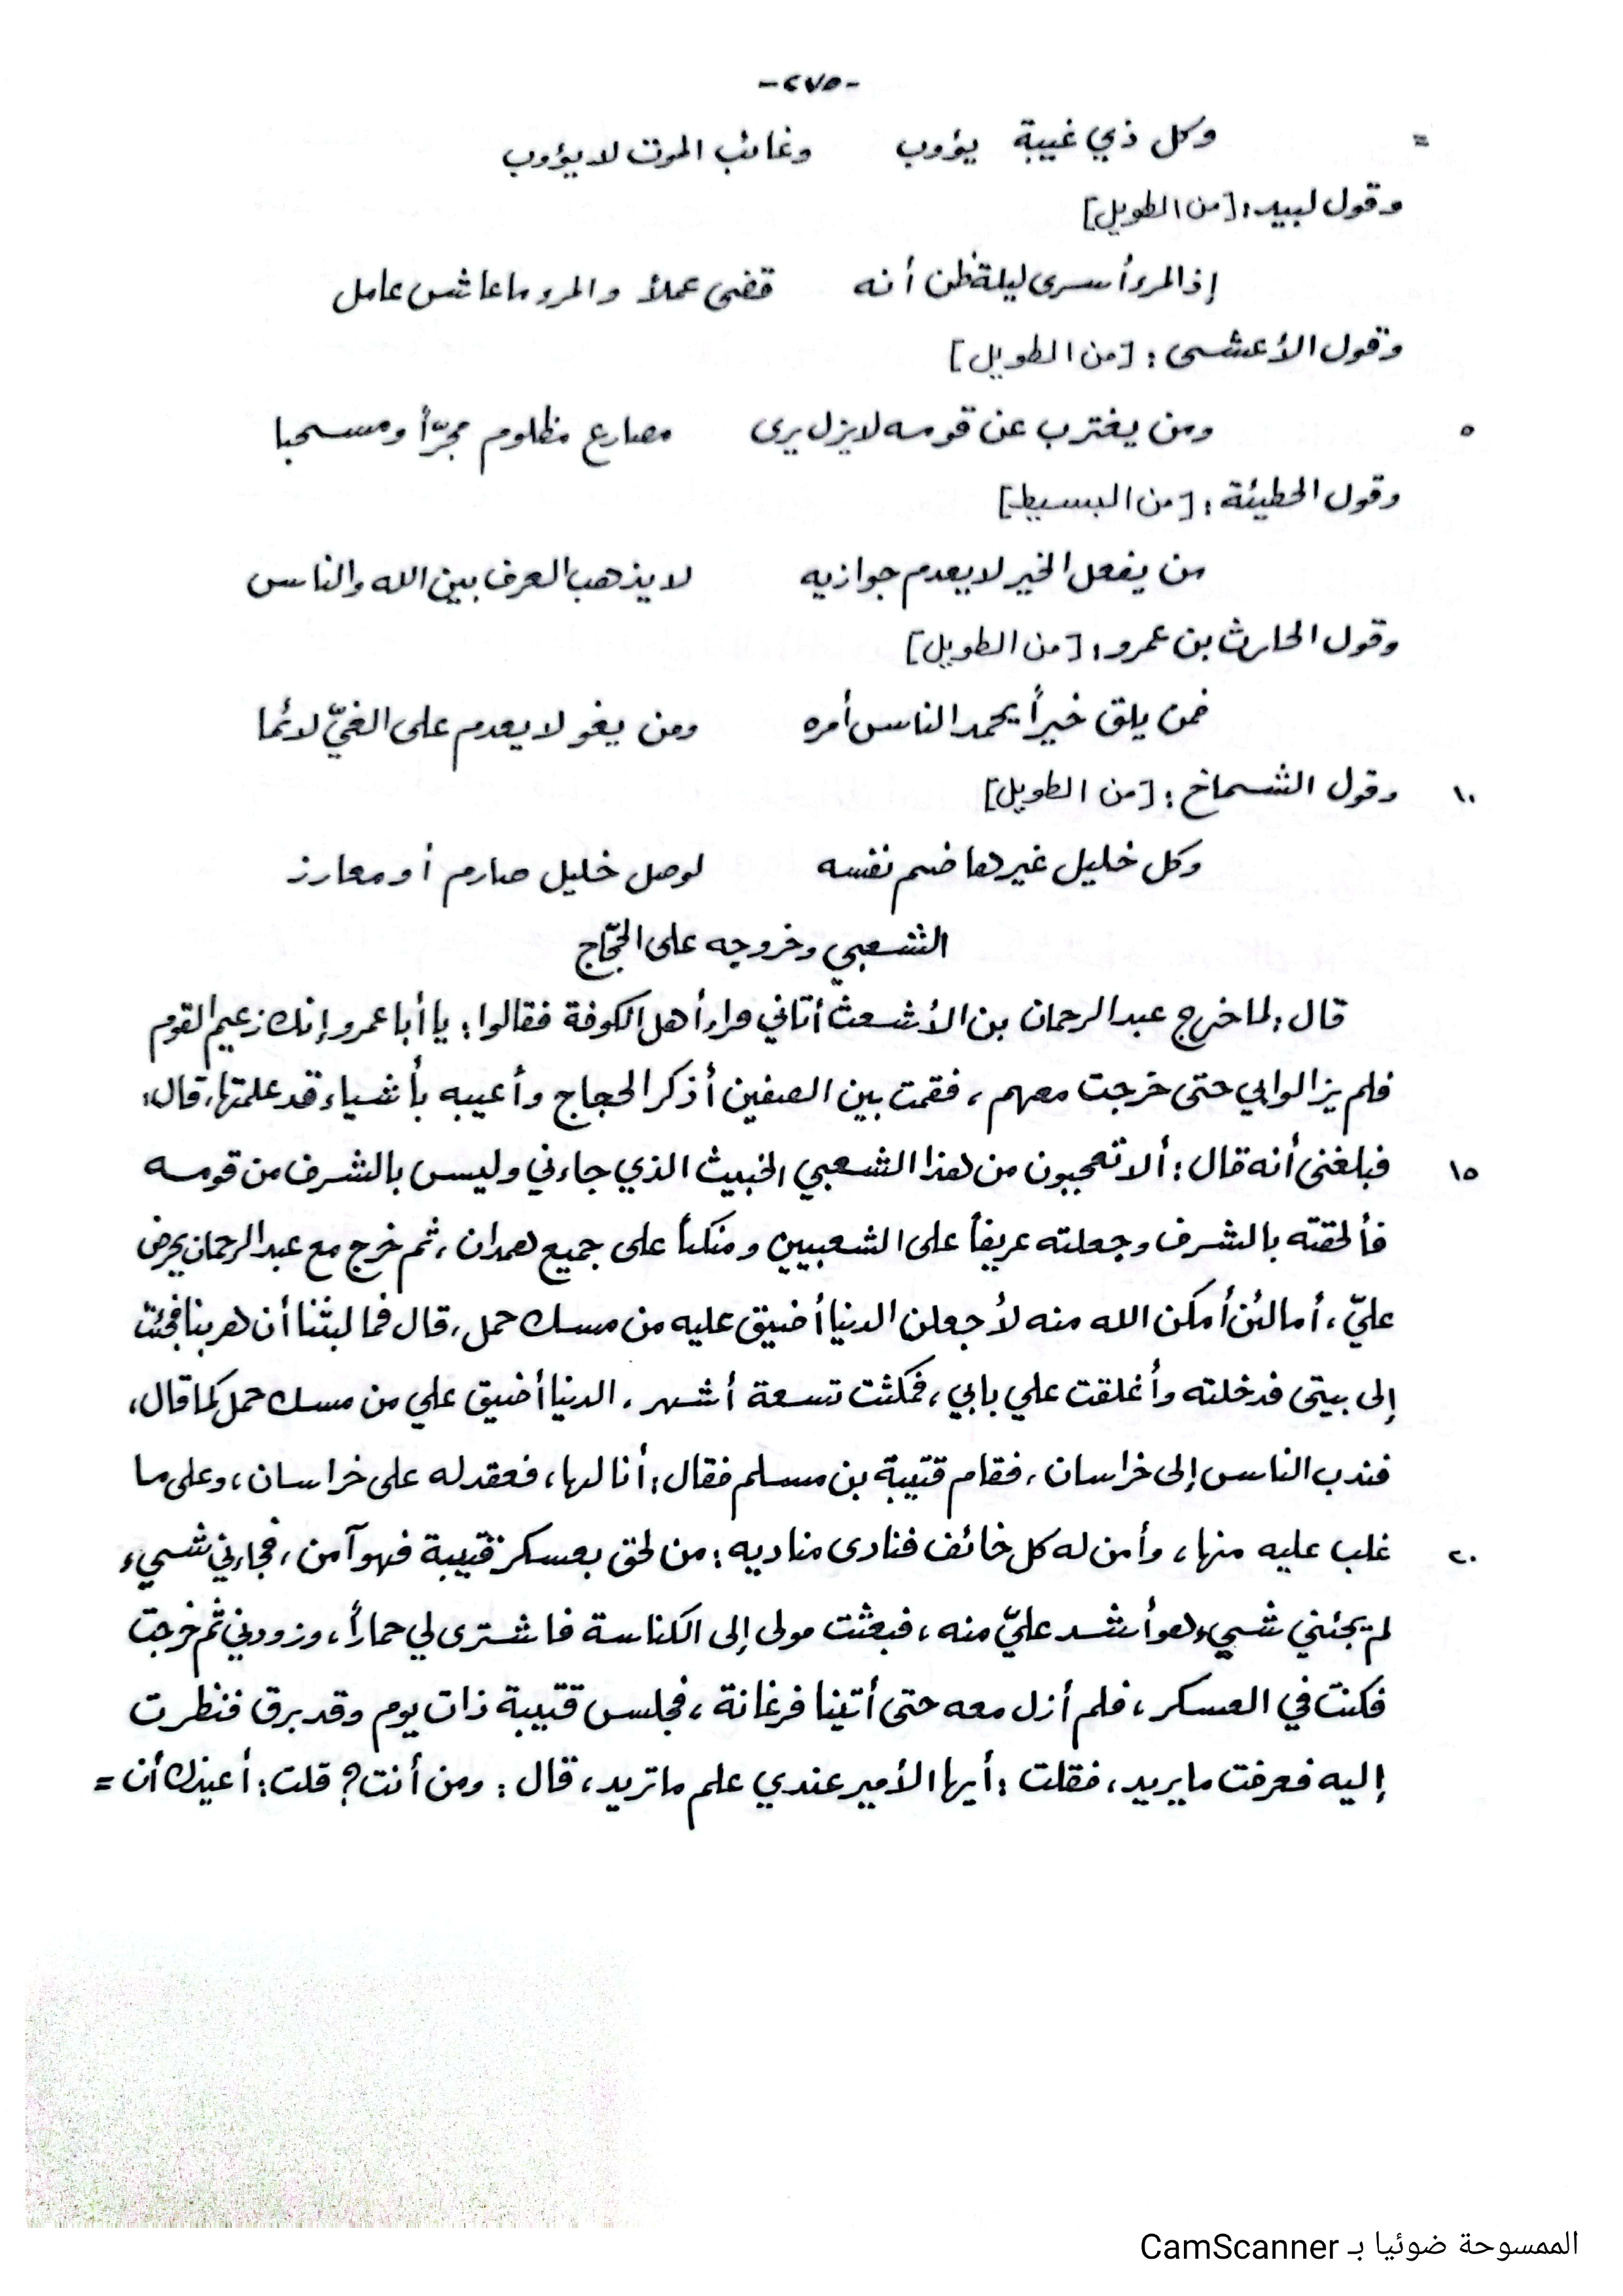 -٢٧٥-
= وكل ذي غيبة يؤوب وغائب الموت لا يؤوب
وقول لبيد: [من الطويل]
إذ المرء أسرى ليلة ظن أنه قضى عملاً والمرء ما عاش عامل
وقول الأعشى: [من الطويل]
٥ ومن يغترب عن قومه لا يزل يرى مصارع مظلوم مجرّاً ومسحبا
وقول الحطيئة: [من البسيط]
من يفعل الخير لا يعدم جوازيه لا يذهب العرف بين الله والناس
وقول الحارث بن عمرو: [من الطويل]
فمن يلق خيراً يحمد الناس أمره ومن يغو لا يعدم على الغيّ لائما
١٠ وقول الشماخ: [من الطويل]
وكل خليل غير هاضم نفسه لوصل خليل صارم أو معارز
الشعبي وخروجه على الحجّاج
قال: لما خرج عبد الرحمان بن الأشعث أتاني قراء أهل الكوفة فقالوا: يا أبا عمرو إنك زعيم القوم
فلم يزالوا بي حتى خرجت معهم، فقمت بين الصفين أذكر الحجاج وأعيبه بأشياء قد علمتها، قال:
١٥ فبلغني أنه قال: ألا تعجبون من هذا الشعبي الخبيث الذي جاءني وليس بالشرف من قومه
فألحقته بالشرف وجعلته عريفاً على الشعبيين ومنكباً على جميع همدان، ثم خرج مع عبد الرحمان يحرض
عليّ، أما لئن أمكن الله منه لأجعلن الدنيا أضيق عليه من مسك حمل، قال فما لبثنا أن هربنا فجئت
إلى بيتي فدخلته وأغلقت علي بابي، فمكثت تسعة أشهر، الدنيا أضيق علي من مسك حمل كما قال،
فندب الناس إلى خراسان، فقام قتيبة بن مسلم فقال: أنا لها، فعقد له على خراسان، وعلى ما
٢٠ غلب عليه منها، وأمن له كل خائف فنادى مناديه: من لحق بعسكر قتيبة فهو آمن، فجاءني شيء
لم يجئني شيء هو أشد عليّ منه، فبعثت مولى إلى الكناسة فاشترى لي حماراً، وزودني ثم خرجت
فكنت في العسكر، فلم أزل معه حتى أتينا فرغانة، فجلس قتيبة ذات يوم وقد برق فنظرت
إليه فعرفت ما يريد، فقلت: أيها الأمير عندي علم ما تريد، قال: ومن أنت؟ قلت: أعيذك أن =
الممسوحة ضوئيا بـ CamScanner